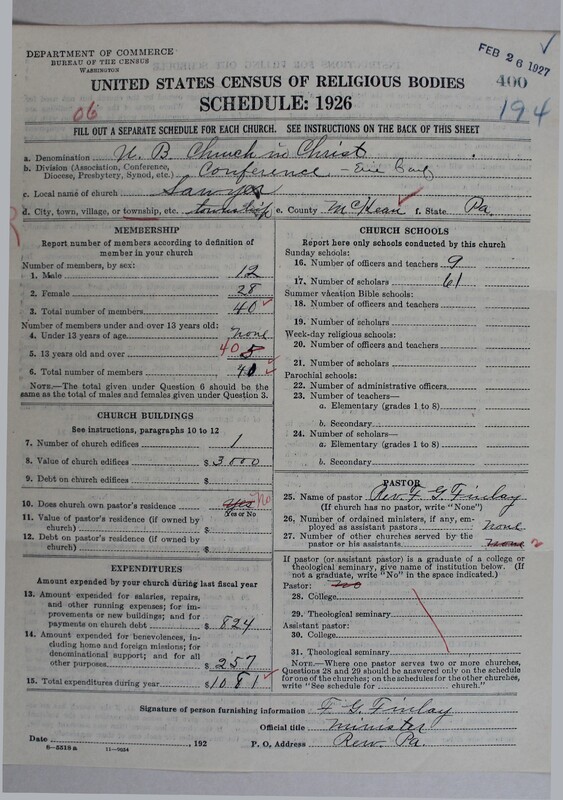 DEPARTMENT OF COMMERCE
BUREAU OF THE CENSUS
WASHINGTON
FEB 26 1927
400
194
UNITED STATES CENSUS OF RELIGIOUS BODIES
06
SCHEDULE: 1926
FILL OUT A SEPARATE SCHEDULE FOR EACH CHURCH. SEE INSTRUCTIONS ON THE BACK OF THIS SHEET
a. Denomination U. B. Church in Christ
b. Division (Association, Conference, Diocese, Presbytery, Synod, etc.) Conference - Erie
c. Local name of church Sawyer
d. City, town, village, or township, etc. township e. County McKean f. State Pa.
MEMBERSHIP
Report number of members according to definition of member in your church
Number of members, by sex:
1. Male 12
2. Female 28
3. Total number of members 40
Number of members under and over 13 years old:
4. Under 13 years of age none
5. 13 years old and over 40 5
6. Total number of members 40
NOTE.—The total given under Question 6 should be the same as the total of males and females given under Question 3.
CHURCH BUILDINGS
See instructions, paragraphs 10 to 12
7. Number of church edifices 1
8. Value of church edifices $ 3,000
9. Debt on church edifices $
10. Does church own pastor's residence Yes No
Yes or No
11. Value of pastor's residence (if owned by church) $
12. Debt on pastor's residence (if owned by church) $
EXPENDITURES
Amount expended by your church during last fiscal year
13. Amount expended for salaries, repairs, and other running expenses; for improvements or new buildings; and for payments on church debt $ 824
14. Amount expended for benevolences, including home and foreign missions; for denominational support; and for all other purposes $ 257
15. Total expenditures during year $ 1081
CHURCH SCHOOLS
Report here only schools conducted by this church
Sunday schools:
16. Number of officers and teachers 9
17. Number of scholars 61
Summer vacation Bible schools:
18. Number of officers and teachers
19. Number of scholars
Week-day religious schools:
20. Number of officers and teachers
21. Number of scholars
Parochial schools:
22. Number of administrative officers
23. Number of teachers—
a. Elementary (grades 1 to 8)
b. Secondary
24. Number of scholars—
a. Elementary (grades 1 to 8)
b. Secondary
PASTOR
25. Name of pastor Rev. F G Finlay
(If church has no pastor, write "None")
26. Number of ordained ministers, if any, employed as assistant pastors none
27. Number of other churches served by the pastor or his assistants none 2
If pastor (or assistant pastor) is a graduate of a college or theological seminary, give name of institution below. (If not a graduate, write "No" in the space indicated.)
Pastor: No
28. College
29. Theological seminary
Assistant pastor:
30. College
31. Theological seminary
NOTE.—Where one pastor serves two or more churches, Questions 28 and 29 should be answered only on the schedule for one of the churches; on the schedules for the other churches, write "See schedule for church."
Signature of person furnishing information F. G. Finlay
Official title Minister
Date , 192 P. O. Address Rew, Pa.
8—5518a 11—9034